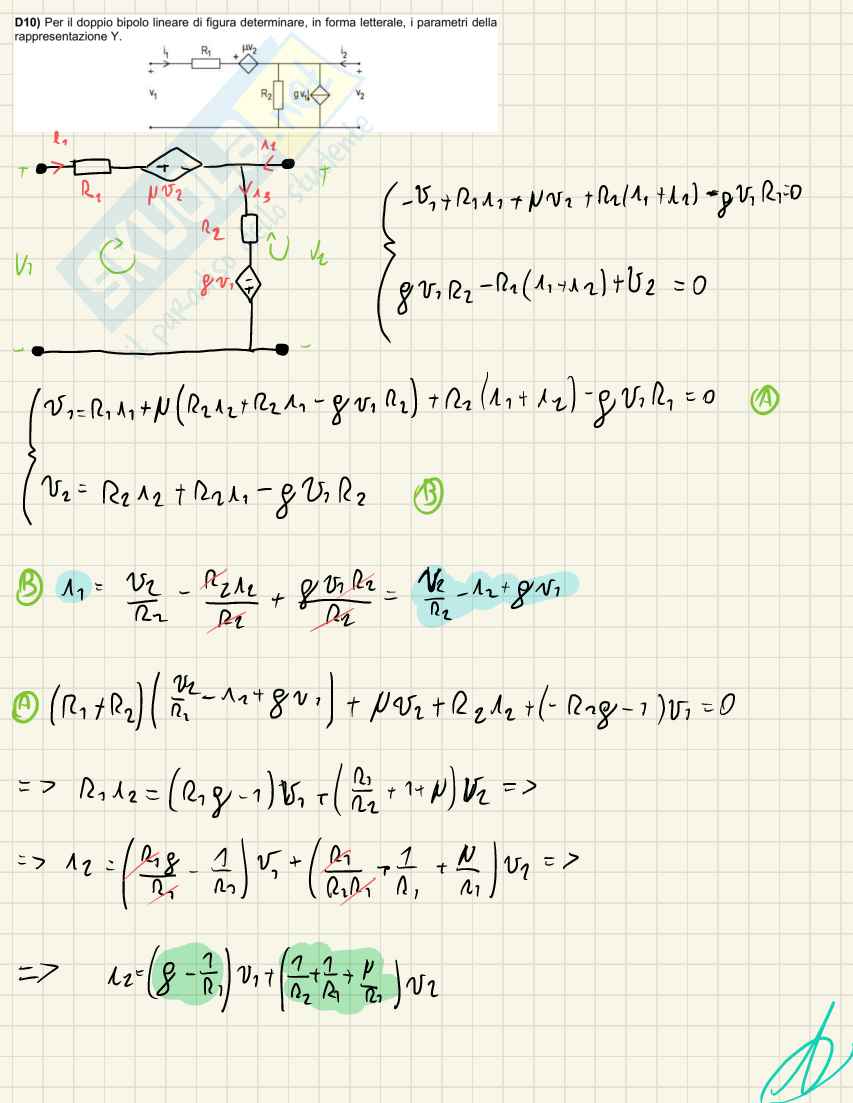 D10) Per il doppio bipolo lineare di figura determinare, in forma letterale, i parametri della
rappresentazione Y.
i₁ R₁ + μv₂ i₂
+ +
v₁ R₂ gv₁ v₂
SKUOLA.net
il paradiso dello studente
+ i₁ R₁ + - μv₂ i₂ +
i₃
V₁ R₂ V₂
gv₁ - +
- -
-v₁ + R₁i₁ + μv₂ + R₂(i₁ + i₂) - gv₁R₁ = 0
gv₁R₂ - R₂(i₁ + i₂) + v₂ = 0
v₁ = R₁i₁ + μ(R₂i₂ + R₂i₁ - gv₁R₂) + R₂(i₁ + i₂) - gv₁R₁ = 0 A
v₂ = R₂i₂ + R₂i₁ - gv₁R₂ B
B i₁ = v₂/R₂ - R₂i₂/R₂ + gv₁R₂/R₂ = v₂/R₂ - i₂ + gv₁
A (R₁ + R₂)(v₂/R₂ - i₂ + gv₁) + μv₂ + R₂i₂ + (-R₂g - 1)v₁ = 0
=> R₁i₂ = (R₁g - 1)v₁ + (R₁/R₂ + 1 + μ)v₂ =>
=> i₂ = (R₁g/R₁ - 1/R₁)v₁ + (R₁/R₂R₁ + 1/R₁ + μ/R₁)v₂ =>
=> i₂ = (g - 1/R₁)v₁ + (1/R₂ + 1/R₁ + μ/R₁)v₂